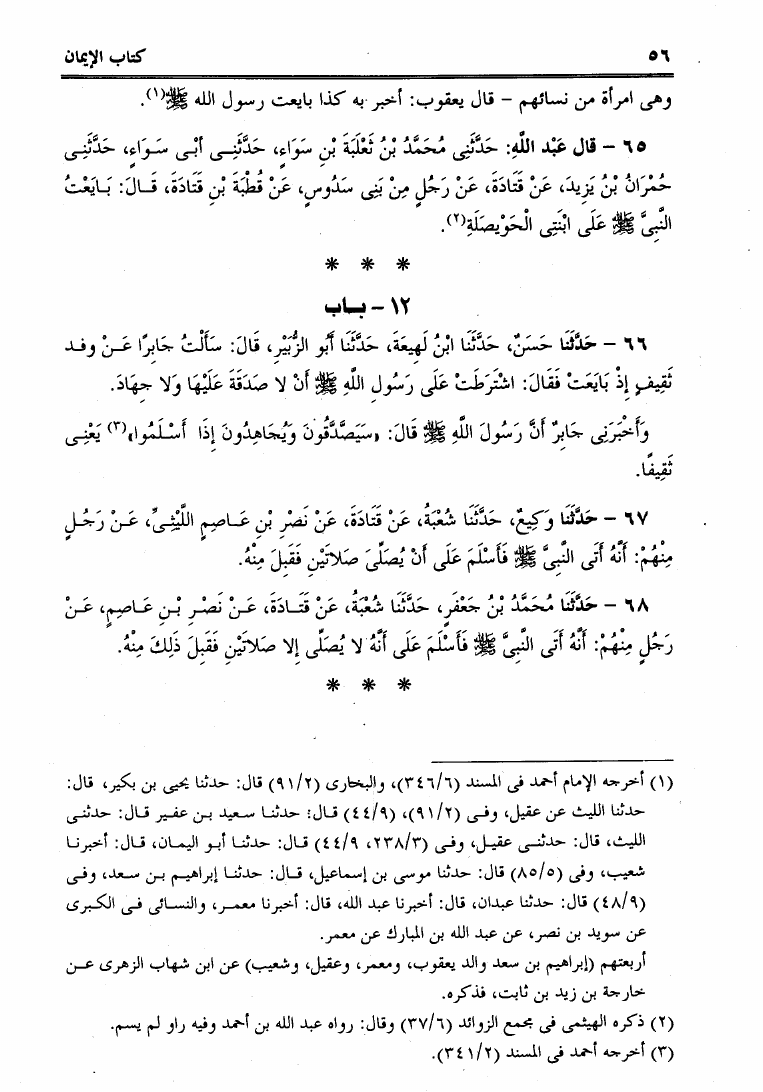 ٥٦ كتاب الإيمان
وهى امرأة من نسائهم – قال يعقوب: أخبر به كذا بايعت رسول الله ﷺ(١).
٦٥ – قال عَبْد اللَّهِ: حَدَّثَنِى مُحَمَّدُ بْنُ ثَعْلَبَةَ بْنِ سَوَاءٍ، حَدَّثَنِى أَبِى سَوَاءٍ، حَدَّثَنِى
حُمْرَانُ بْنُ يَزِيدَ، عَنْ قَتَادَةَ، عَنْ رَجُلٍ مِنْ بَنِى سَدُوسٍ، عَنْ قُطْبَةَ بْنِ قَتَادَةَ، قَالَ: بَايَعْتُ
النَّبِىَّ ﷺ عَلَى ابْنَتِى الْحَوْيصَلَةِ(٢).
* * *
١٢ – باب
٦٦ – حَدَّثَنَا حَسَنٌ، حَدَّثَنَا ابْنُ لَهِيعَةَ، حَدَّثَنَا أَبُو الزُّبَيْرِ، قَالَ: سَأَلْتُ جَابِرًا عَنْ وفد
ثَقِيفٍ إِذْ بَايَعَتْ فَقَالَ: اشْتَرَطَتْ عَلَى رَسُولِ اللَّهِ ﷺ أَنْ لا صَدَقَةَ عَلَيْهَا وَلا جِهَادَ.
وَأَخْبَرَنِى جَابِرٌ أَنَّ رَسُولَ اللَّهِ ﷺ قَالَ: «سَيَصَّدَّقُونَ وَيُجَاهِدُونَ إِذَا أَسْلَمُوا»(٣) يَعْنِى
ثَقِيفًا.
٦٧ – حَدَّثَنَا وَكِيعٌ، حَدَّثَنَا شُعْبَةُ، عَنْ قَتَادَةَ، عَنْ نَصْرِ بْنِ عَاصِمٍ اللَّيْثِىِّ، عَنْ رَجُلٍ
مِنْهُمْ: أَنَّهُ أَتَى النَّبِىَّ ﷺ فَأَسْلَمَ عَلَى أَنْ يُصَلِّىَ صَلاتَيْنِ فَقَبِلَ مِنْهُ.
٦٨ – حَدَّثَنَا مُحَمَّدُ بْنُ جَعْفَرٍ، حَدَّثَنَا شُعْبَةُ، عَنْ قَتَادَةَ، عَنْ نَصْرِ بْنِ عَاصِمٍ، عَنْ
رَجُلٍ مِنْهُمْ: أَنَّهُ أَتَى النَّبِىَّ ﷺ فَأَسْلَمَ عَلَى أَنَّهُ لا يُصَلِّى إِلا صَلاتَيْنِ فَقَبِلَ ذَلِكَ مِنْهُ.
* * *
(١) أخرجه الإمام أحمد فى المسند (٣٤٦/٦)، والبخارى (٩١/٢) قال: حدثنا يحيى بن بكير، قال:
حدثنا الليث عن عقيل، وفى (٩١/٢)، (٤٤/٩) قال: حدثنا سعيد بن عفير قال: حدثنى
الليث، قال: حدثنى عقيل، وفى (٢٣٨/٣، ٤٤/٩) قال: حدثنا أبو اليمان، قال: أخبرنا
شعيب، وفى (٨٥/٥) قال: حدثنا موسى بن إسماعيل، قال: حدثنا إبراهيم بن سعد، وفى
(٤٨/٩) قال: حدثنا عبدان، قال: أخبرنا عبد الله، قال: أخبرنا معمر، والنسائى فى الكبرى
عن سويد بن نصر، عن عبد الله بن المبارك عن معمر.
أربعتهم (إبراهيم بن سعد والد يعقوب، ومعمر، وعقيل، وشعيب) عن ابن شهاب الزهرى عن
خارجة بن زيد بن ثابت، فذكره.
(٢) ذكره الهيثمى فى مجمع الزوائد (٣٧/٦) وقال: رواه عبد الله بن أحمد وفيه راو لم يسم.
(٣) أخرجه أحمد فى المسند (٣٤١/٢).